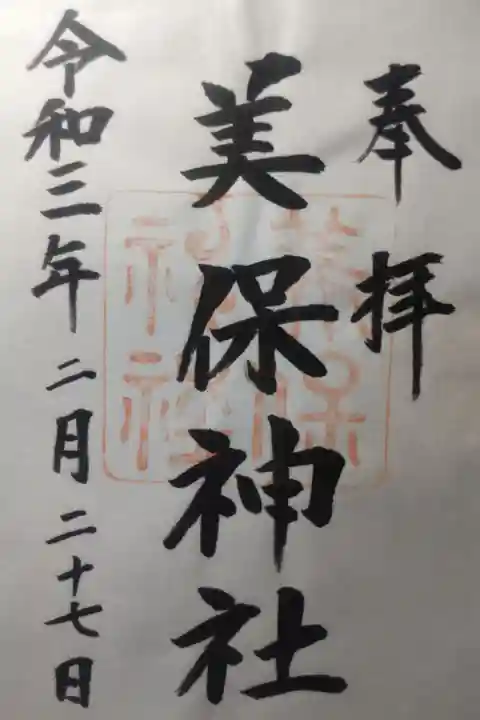 奉拝
美保神社
美保
神社
令和三年二月二十七日